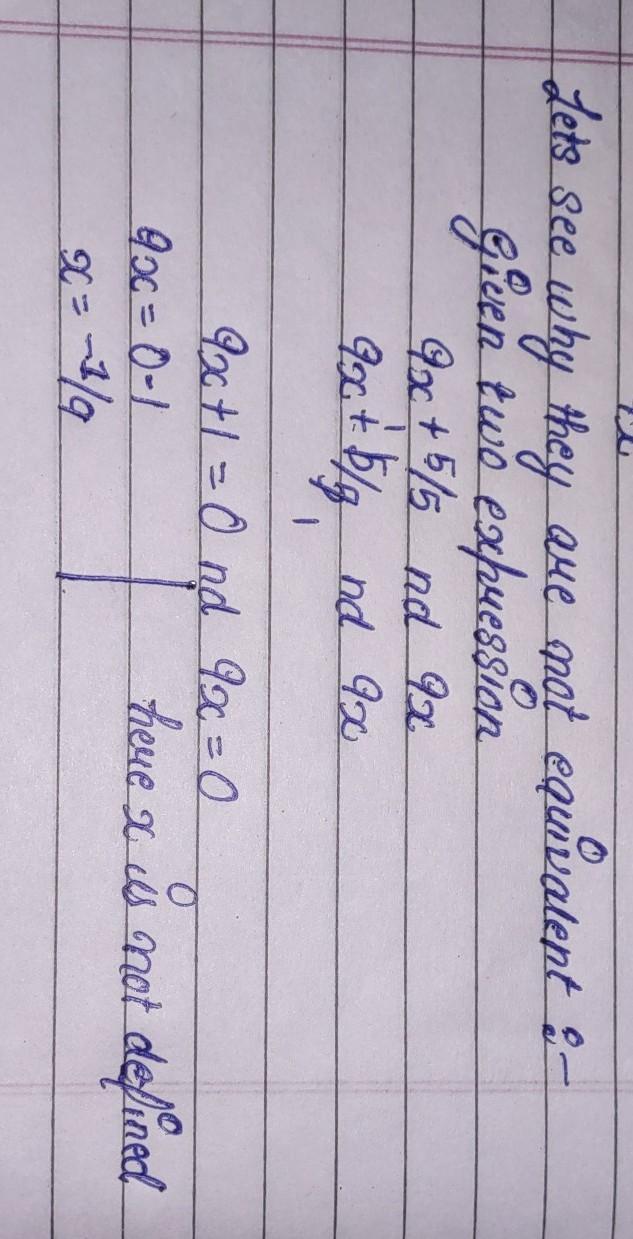 Lets see why they are not equivalent :-
Given two expression
9x + 5/5 nd 9x
9x + 5/5 nd 9x
9x + 1 = 0 nd 9x = 0
9x = 0 - 1
here x is not defined
x = -1/9